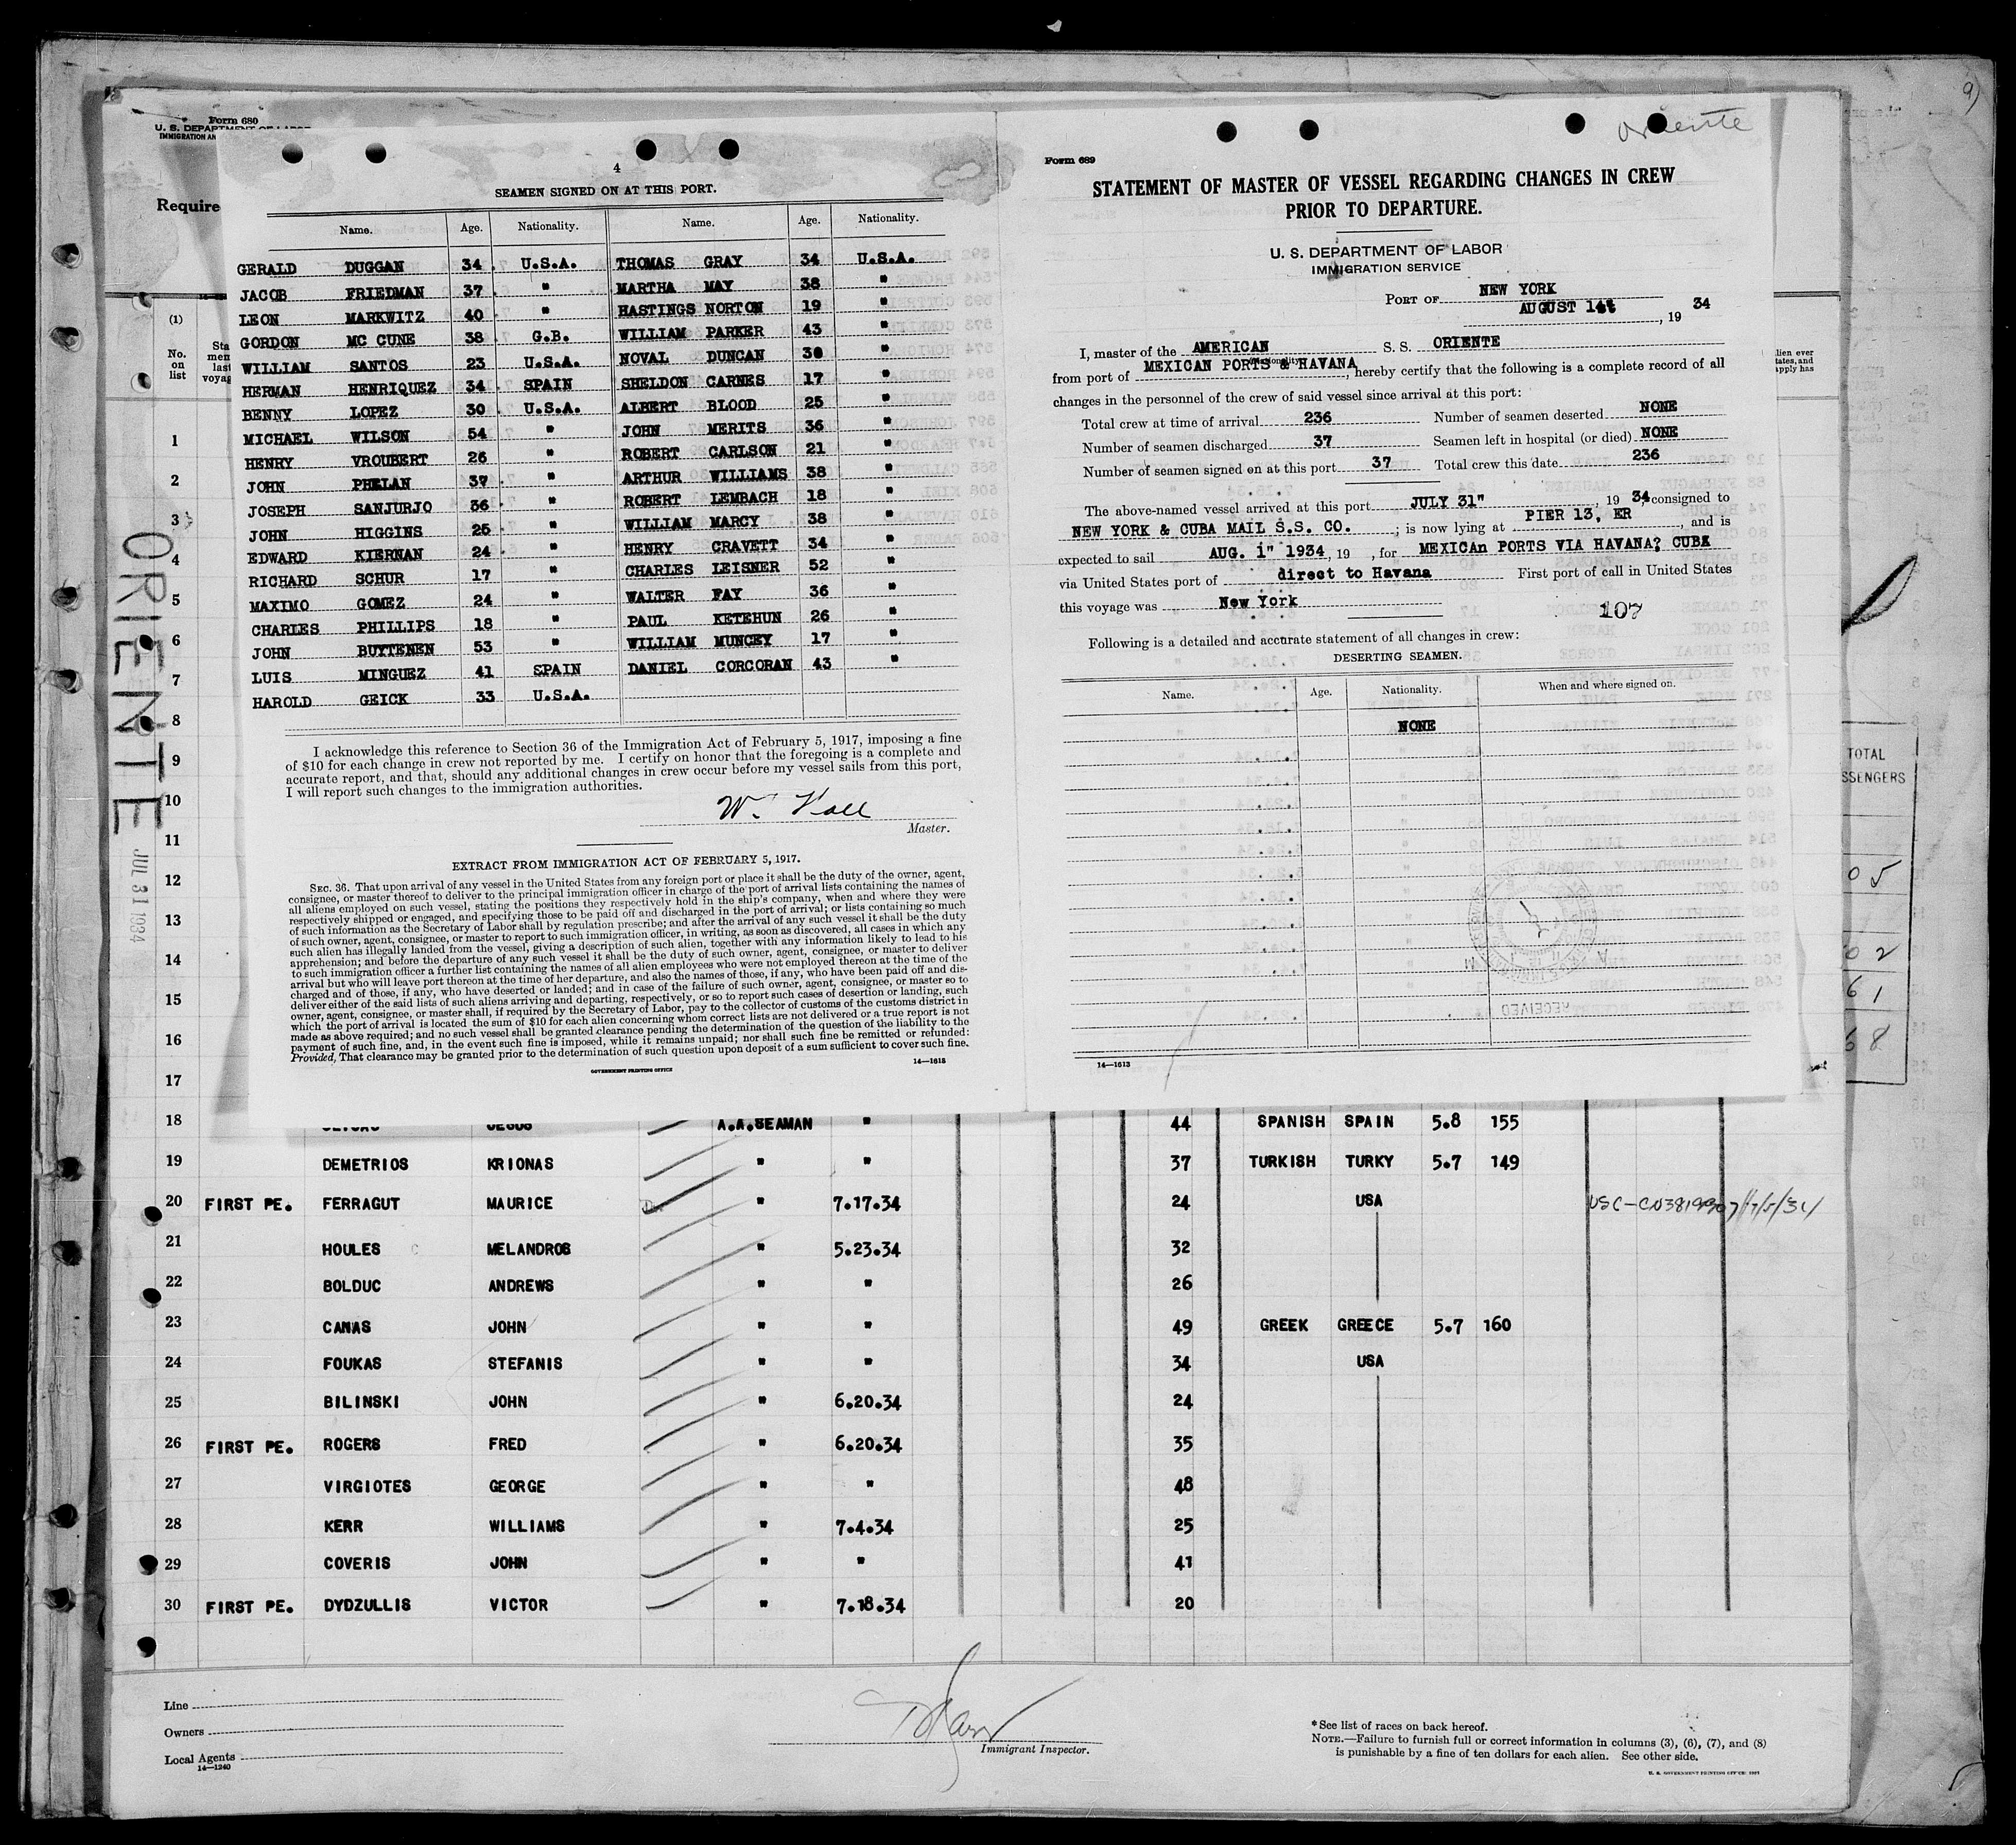 Form 680
U. S. DEPARTMENT OF LABOR
IMMIGRATION AN
Require
(1)
No.
on
list
Sta
men
last
voyag
ORIENTE
JUL 31 1934
4
SEAMEN SIGNED ON AT THIS PORT.
Name. Age. Nationality. Name. Age. Nationality.
GERALD DUGGAN 34 U.S.A. THOMAS GRAY 34 U.S.A.
JACOB FRIEDMAN 37 " MARTHA MAY 38 "
LEON MARKWITZ 40 " HASTINGS NORTON 19 "
GORDON MC CUNE 38 G.B. WILLIAM PARKER 43 "
WILLIAM SANTOS 23 U.S.A. NOVAL DUNCAN 30 "
HERMAN HENRIQUEZ 34 SPAIN SHELDON CARNES 17 "
BENNY LOPEZ 30 U.S.A. ALBERT BLOOD 25 "
MICHAEL WILSON 54 " JOHN MERITS 36 "
HENRY VROUBERT 26 " ROBERT CARLSON 21 "
JOHN PHELAN 37 " ARTHUR WILLIAMS 38 "
JOSEPH SANJURJO 36 " ROBERT LEMBACH 18 "
JOHN HIGGINS 25 " WILLIAM MARCY 38 "
EDWARD KIERNAN 24 " HENRY CRAVETT 34 "
RICHARD SCHUR 17 " CHARLES LEISNER 52 "
MAXIMO GOMEZ 24 " WALTER FAY 36 "
CHARLES PHILLIPS 18 " PAUL KETEHUN 26 "
JOHN BUYTENEN 53 " WILLIAM MUNCEY 17 "
LUIS MINGUEZ 41 SPAIN DANIEL CORCORAN 43 "
HAROLD GEICK 33 U.S.A.
I acknowledge this reference to Section 36 of the Immigration Act of February 5, 1917, imposing a fine
of $10 for each change in crew not reported by me. I certify on honor that the foregoing is a complete and
accurate report, and that, should any additional changes in crew occur before my vessel sails from this port,
I will report such changes to the immigration authorities.
Master.
EXTRACT FROM IMMIGRATION ACT OF FEBRUARY 5, 1917.
SEC. 36. That upon arrival of any vessel in the United States from any foreign port or place it shall be the duty of the owner, agent,
consignee, or master thereof to deliver to the principal immigration officer in charge of the port of arrival lists containing the names of
all aliens employed on such vessel, stating the positions they respectively hold in the ship's company, when and where they were
respectively shipped or engaged, and specifying those to be paid off and discharged in the port of arrival; or lists containing so much
of such information as the Secretary of Labor shall by regulation prescribe; and after the arrival of any such vessel it shall be the duty
of such owner, agent, consignee, or master to report to such immigration officer, in writing, as soon as discovered, all cases in which any
such alien has illegally landed from the vessel, giving a description of such alien, together with any information likely to lead to his
apprehension; and before the departure of any such vessel it shall be the duty of such owner, agent, consignee, or master to deliver
to such immigration officer a further list containing the names of all alien employees who were not employed thereon at the time of the
arrival but who will leave port thereon at the time of her departure, and also the names of those, if any, who have been paid off and dis-
charged and of those, if any, who have deserted or landed; and in case of the failure of such owner, agent, consignee, or master so to
deliver either of the said lists of such aliens arriving and departing, respectively, or so to report such cases of desertion or landing, such
owner, agent, consignee, or master shall, if required by the Secretary of Labor, pay to the collector of customs of the customs district in
which the port of arrival is located the sum of $10 for each alien concerning whom correct lists are not delivered or a true report is not
made as above required; and no such vessel shall be granted clearance pending the determination of the question of the liability to the
payment of such fine, and, in the event such fine is imposed, while it remains unpaid; nor shall such fine be remitted or refunded:
Provided, That clearance may be granted prior to the determination of such question upon deposit of a sum sufficient to cover such fine.
GOVERNMENT PRINTING OFFICE 14—1613
Oriente
Form 689
STATEMENT OF MASTER OF VESSEL REGARDING CHANGES IN CREW
PRIOR TO DEPARTURE.
U. S. DEPARTMENT OF LABOR
IMMIGRATION SERVICE
PORT OF NEW YORK
AUGUST 1st, 19 34
I, master of the AMERICAN S. S. ORIENTE
(Nationality)
from port of MEXICAN PORTS & HAVANA, hereby certify that the following is a complete record of all
changes in the personnel of the crew of said vessel since arrival at this port:
Total crew at time of arrival 236 Number of seamen deserted NONE
Number of seamen discharged 37 Seamen left in hospital (or died) NONE
Number of seamen signed on at this port 37 Total crew this date 236
The above-named vessel arrived at this port JULY 31", 19 34 consigned to
NEW YORK & CUBA MAIL S.S. CO.; is now lying at PIER 13, ER, and is
expected to sail AUG. 1" 1934, 19 , for MEXICAn PORTS VIA HAVANA? CUBA
via United States port of direct to Havana First port of call in United States
this voyage was New York
107
Following is a detailed and accurate statement of all changes in crew:
DESERTING SEAMEN.
Name. Age. Nationality. When and where signed on.
NONE
RECEIVED
14—1613
TOTAL
SSENGERS
05
02
61
68
1
2
3
4
5
6
7
8
9
10
11
12
13
14
15
16
17
18 A.A.SEAMAN " 44 SPANISH SPAIN 5.8 155
19 DEMETRIOS KRIONAS " " 37 TURKISH TURKY 5.7 149
20 FIRST PE. FERRAGUT MAURICE " 7.17.34 24 USA
21 HOULES MELANDROS " 5.23.34 32
22 BOLDUC ANDREWS " " 26
23 CANAS JOHN " " 49 GREEK GREECE 5.7 160
24 FOUKAS STEFANIS " " 34 USA
25 BILINSKI JOHN " 6.20.34 24
26 FIRST PE. ROGERS FRED " 6.20.34 35
27 VIRGIOTES GEORGE " " 48
28 KERR WILLIAMS " 7.4.34 25
29 COVERIS JOHN " " 41
30 FIRST PE. DYDZULLIS VICTOR " 7.18.34 20
Line
Owners
Local Agents
14—1240
Immigrant Inspector.
*See list of races on back hereof.
NOTE.—Failure to furnish full or correct information in columns (3), (6), (7), and (8)
is punishable by a fine of ten dollars for each alien. See other side.